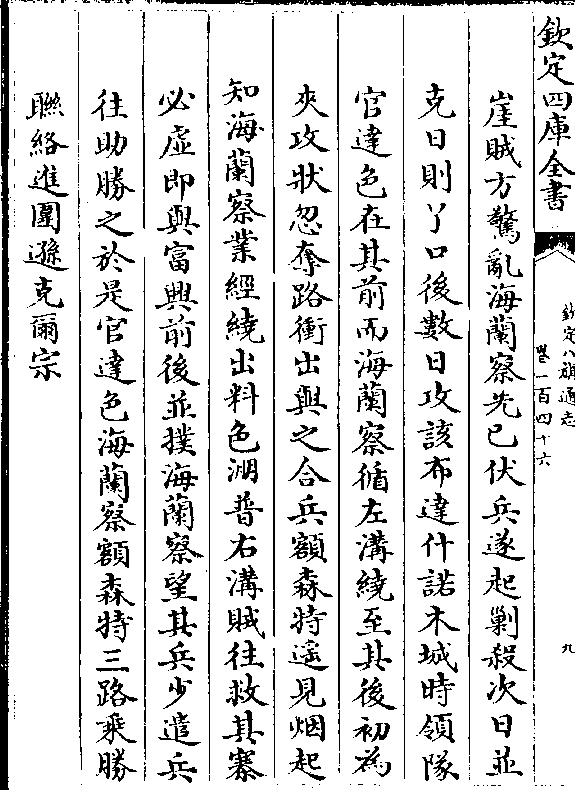 欽定四庫全書
欽定八旗通志
卷一百四十六
九
崖賊方驚亂海蘭察先已伏兵遂起剿殺次日並
克日則丫口後數日攻該布達什諾木城時領隊
官達色在其前而海蘭察循左溝繞至其後初為
夾攻狀忽奪路衝出與之合兵額森特遥見烟起
知海蘭察業經繞出料色淜普右溝賊往救其寨
必虛即與富興前後並撲海蘭察望其兵少遣兵
往助勝之於是官達色海蘭察額森特三路乘勝
聯絡進圍遜克爾宗